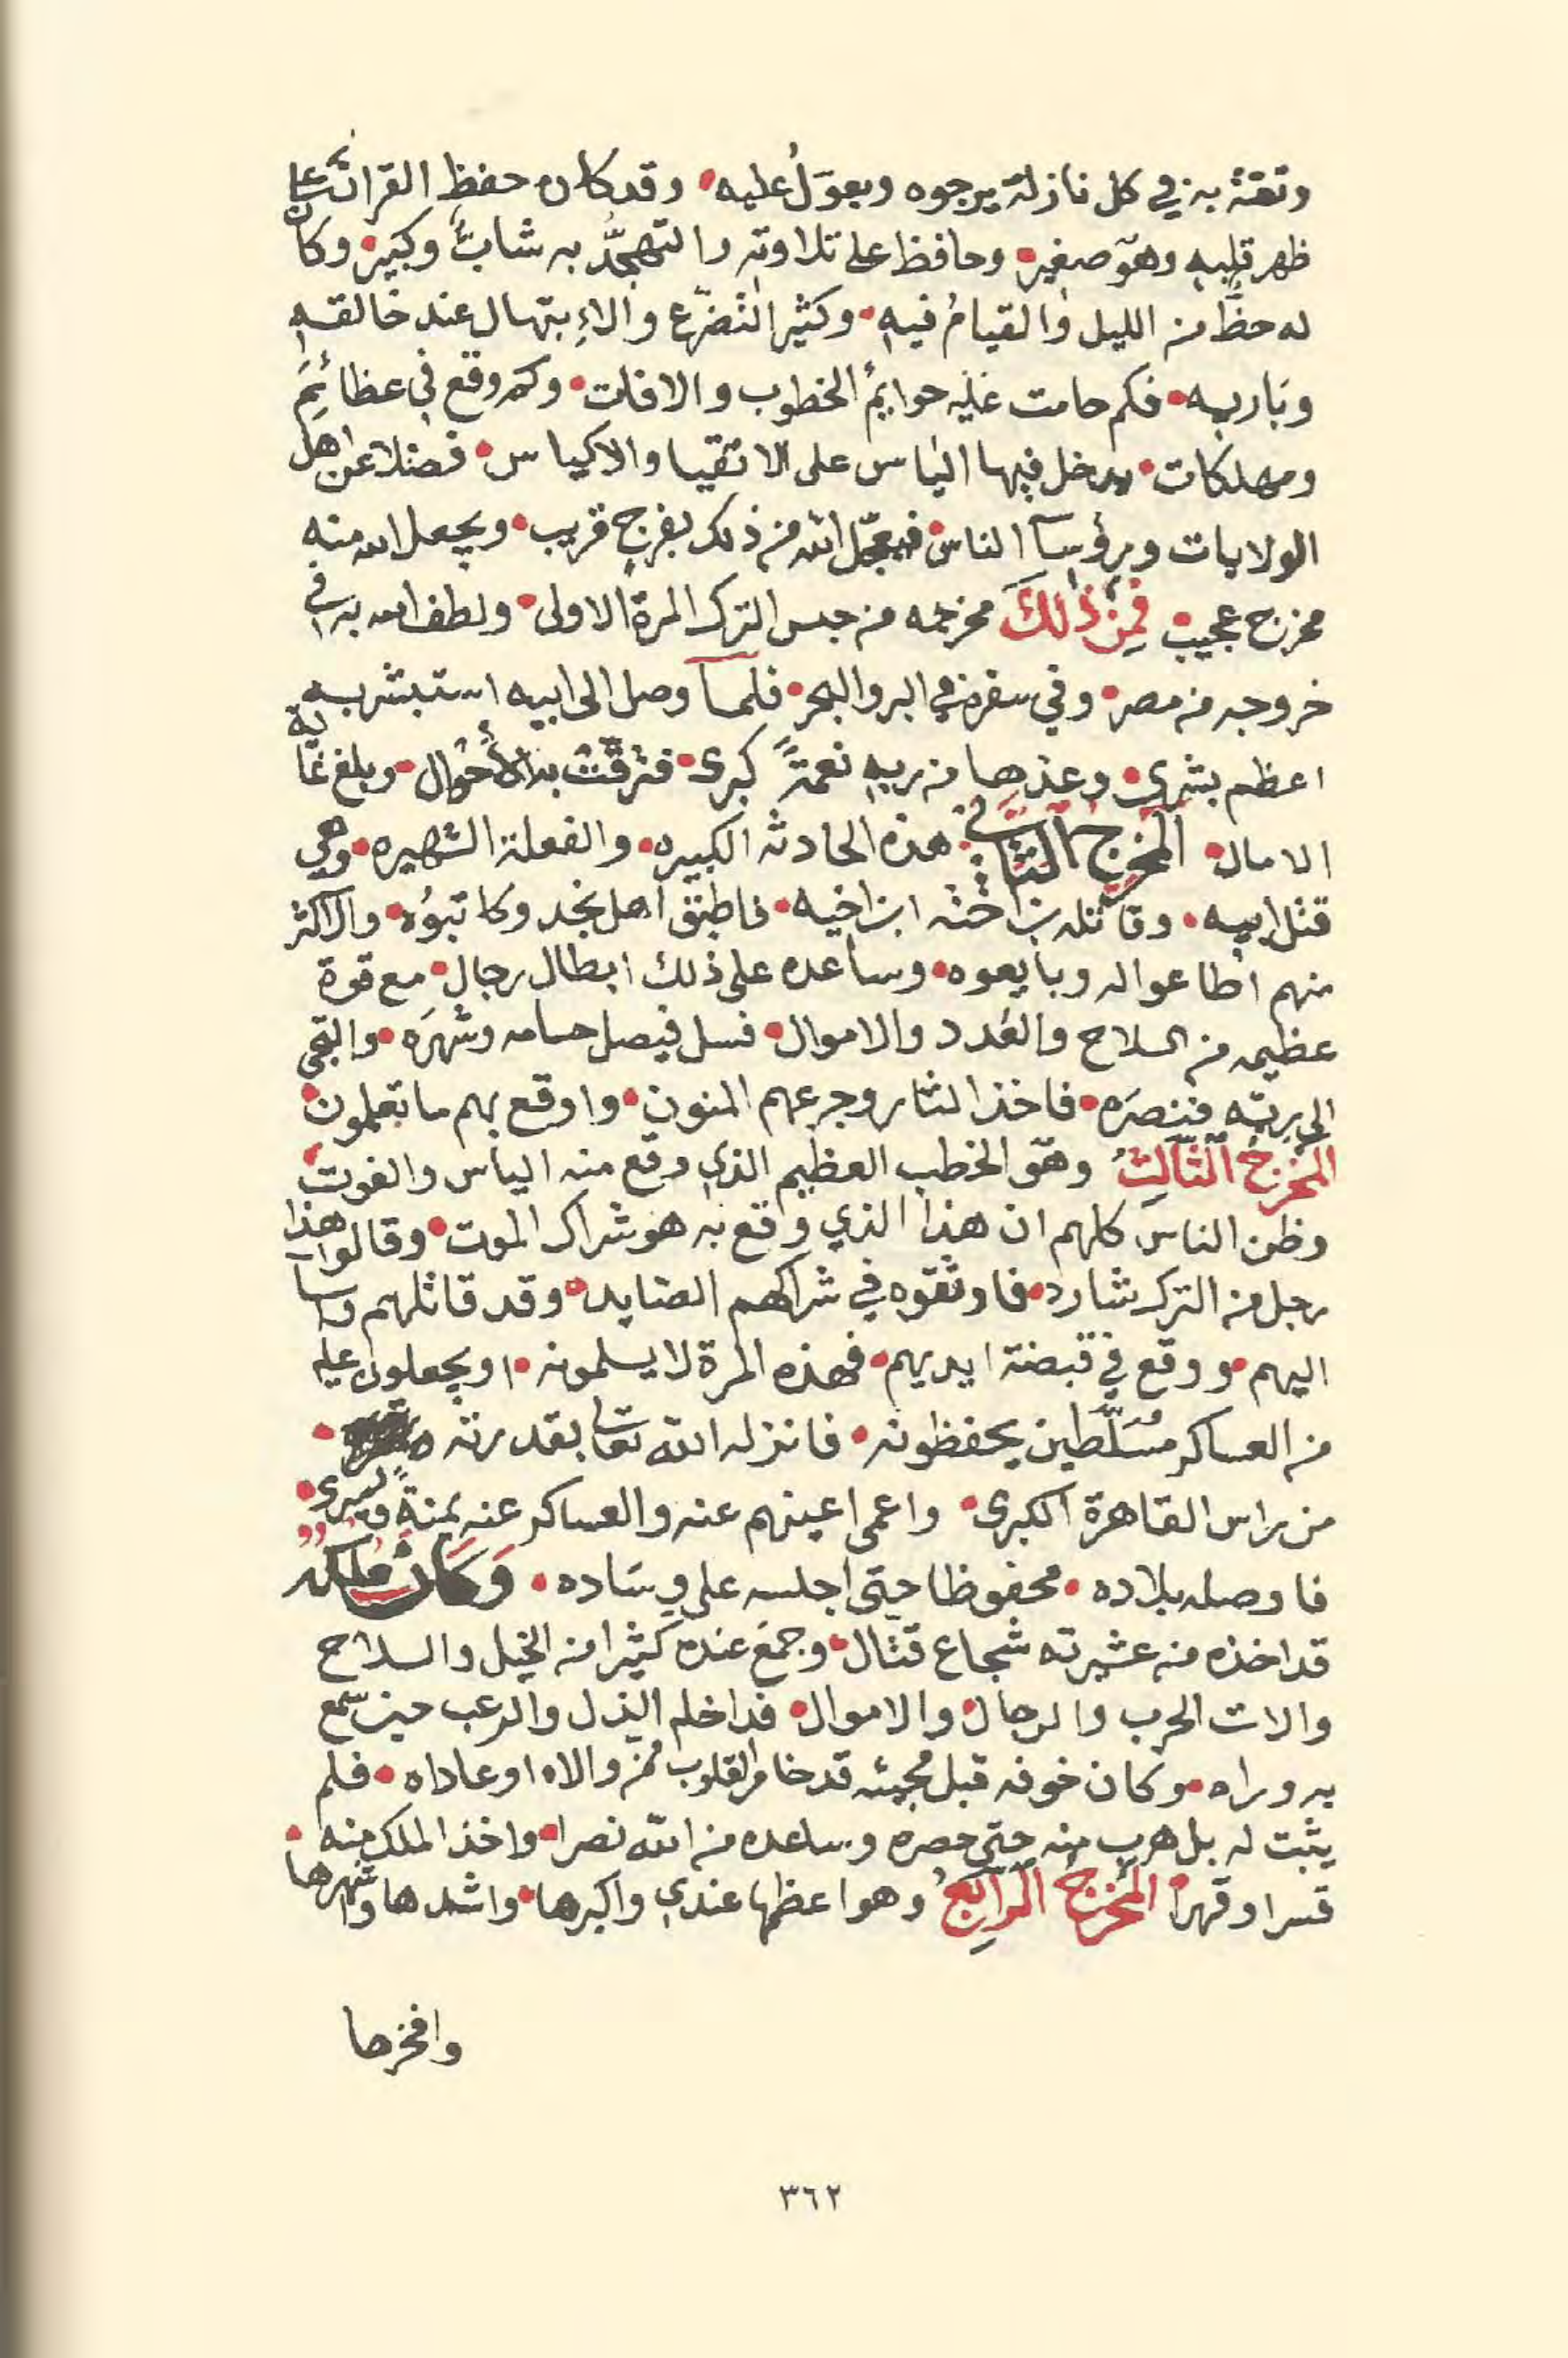 وثقته به في كل نازلة يرجوه ويعوَلُ عليه • وقد كان حفظ القرآن على
ظهر قلبه وهو صغير • وحافظ على تلاوته والتهجُّد به شابٌ وكبير • وكان
له حظٌ من الليل والقيامُ فيه • وكثير التضرّع والاءِبتهال عند خالقه
وباريه • فكم حامت عليه حوايمُ الخطوب والافات • وكم وقع في عظائم
ومهلكات • يدخل فيها الياس على الاتقيا والاكياس • فضلا عن اهل
الولايات ورؤسآ الناس • فيعجّل الله من ذلك بفرج قريب • ويجعل الله منه
مخرج عجيب • فمِن ذٰلكَ مخرجه من حبس الترك المرة الاولى • ولطف الله به في
خروجه من مصر • وفي سفره في البر والبحر • فلمآ وصل الى ابيه استبشر به
اعظم بشرى • وعدها من ربه نعمةً كبرى • فترقّت به الأحوال • وبلغ غاية
الامال • المخرج الثاني هذه الحادثه الكبيره • والفعلة الشهيره • وهي
قتل ابيه • وقاتله بن اخته ابن اخيه • فاطبق اهل نجد وكاتبوُه • والاكثر
منهم اطاعوا له وبايعوه • وساعده على ذلك ابطال رجال • مع قوة
عظيمه من السلاح والعَدد والاموال • فسل فيصل حسامه وشهَره • والتجى
الى ربّه فنصرَه • فاخذ الثار وجرعهم المنون • واوقع بهم ما يعملون •
المخرجُ الثالثُ وهو الخطب العظيم الذي وقع منه الياس والفوت •
وظن الناس كلهم ان هذا الذي وقع به هو شراك الموت • وقالوا هذا
رجل من الترك شارد • فاوثقوه في شراكهم الصايد • وقد قاتلهم واسآ
اليهم • ووقع في قبضة ايديهم • فهذه المرة لا يسلمونه • او يجعلون عليه
من العساكر مُسَلَّطين يحفظونه • فانزله الله تعالى بقدرته •
من راس القاهرة الكبرى • واعمى اعينهم عنه والعساكر عنه يمنةً ويسرى •
فاوصله بلاده • محفوظا حتى اجلسه على وسَاده • وَكَان مُلكُه
قد اخذه من عشيرته شجاع قتال • وجمع عنده كثيرا من الخيل والسلاح
والات الحرب والرجال والاموال • فداخله الذل والرعب حين سمع
به وراه • وكان خوفه قبل مجيئه قد خامر القلوب ممن والاه او عاداه • فلم
يثبت له بل هرب منه حتى حصره وساعده من الله نصرا • واخذ الملك منه •
قسرا وقهرا • المخرجُ الرابعُ وهو اعظمها عندي واكبرها • واشدها وشهرها
وافخرها
٣٦٢